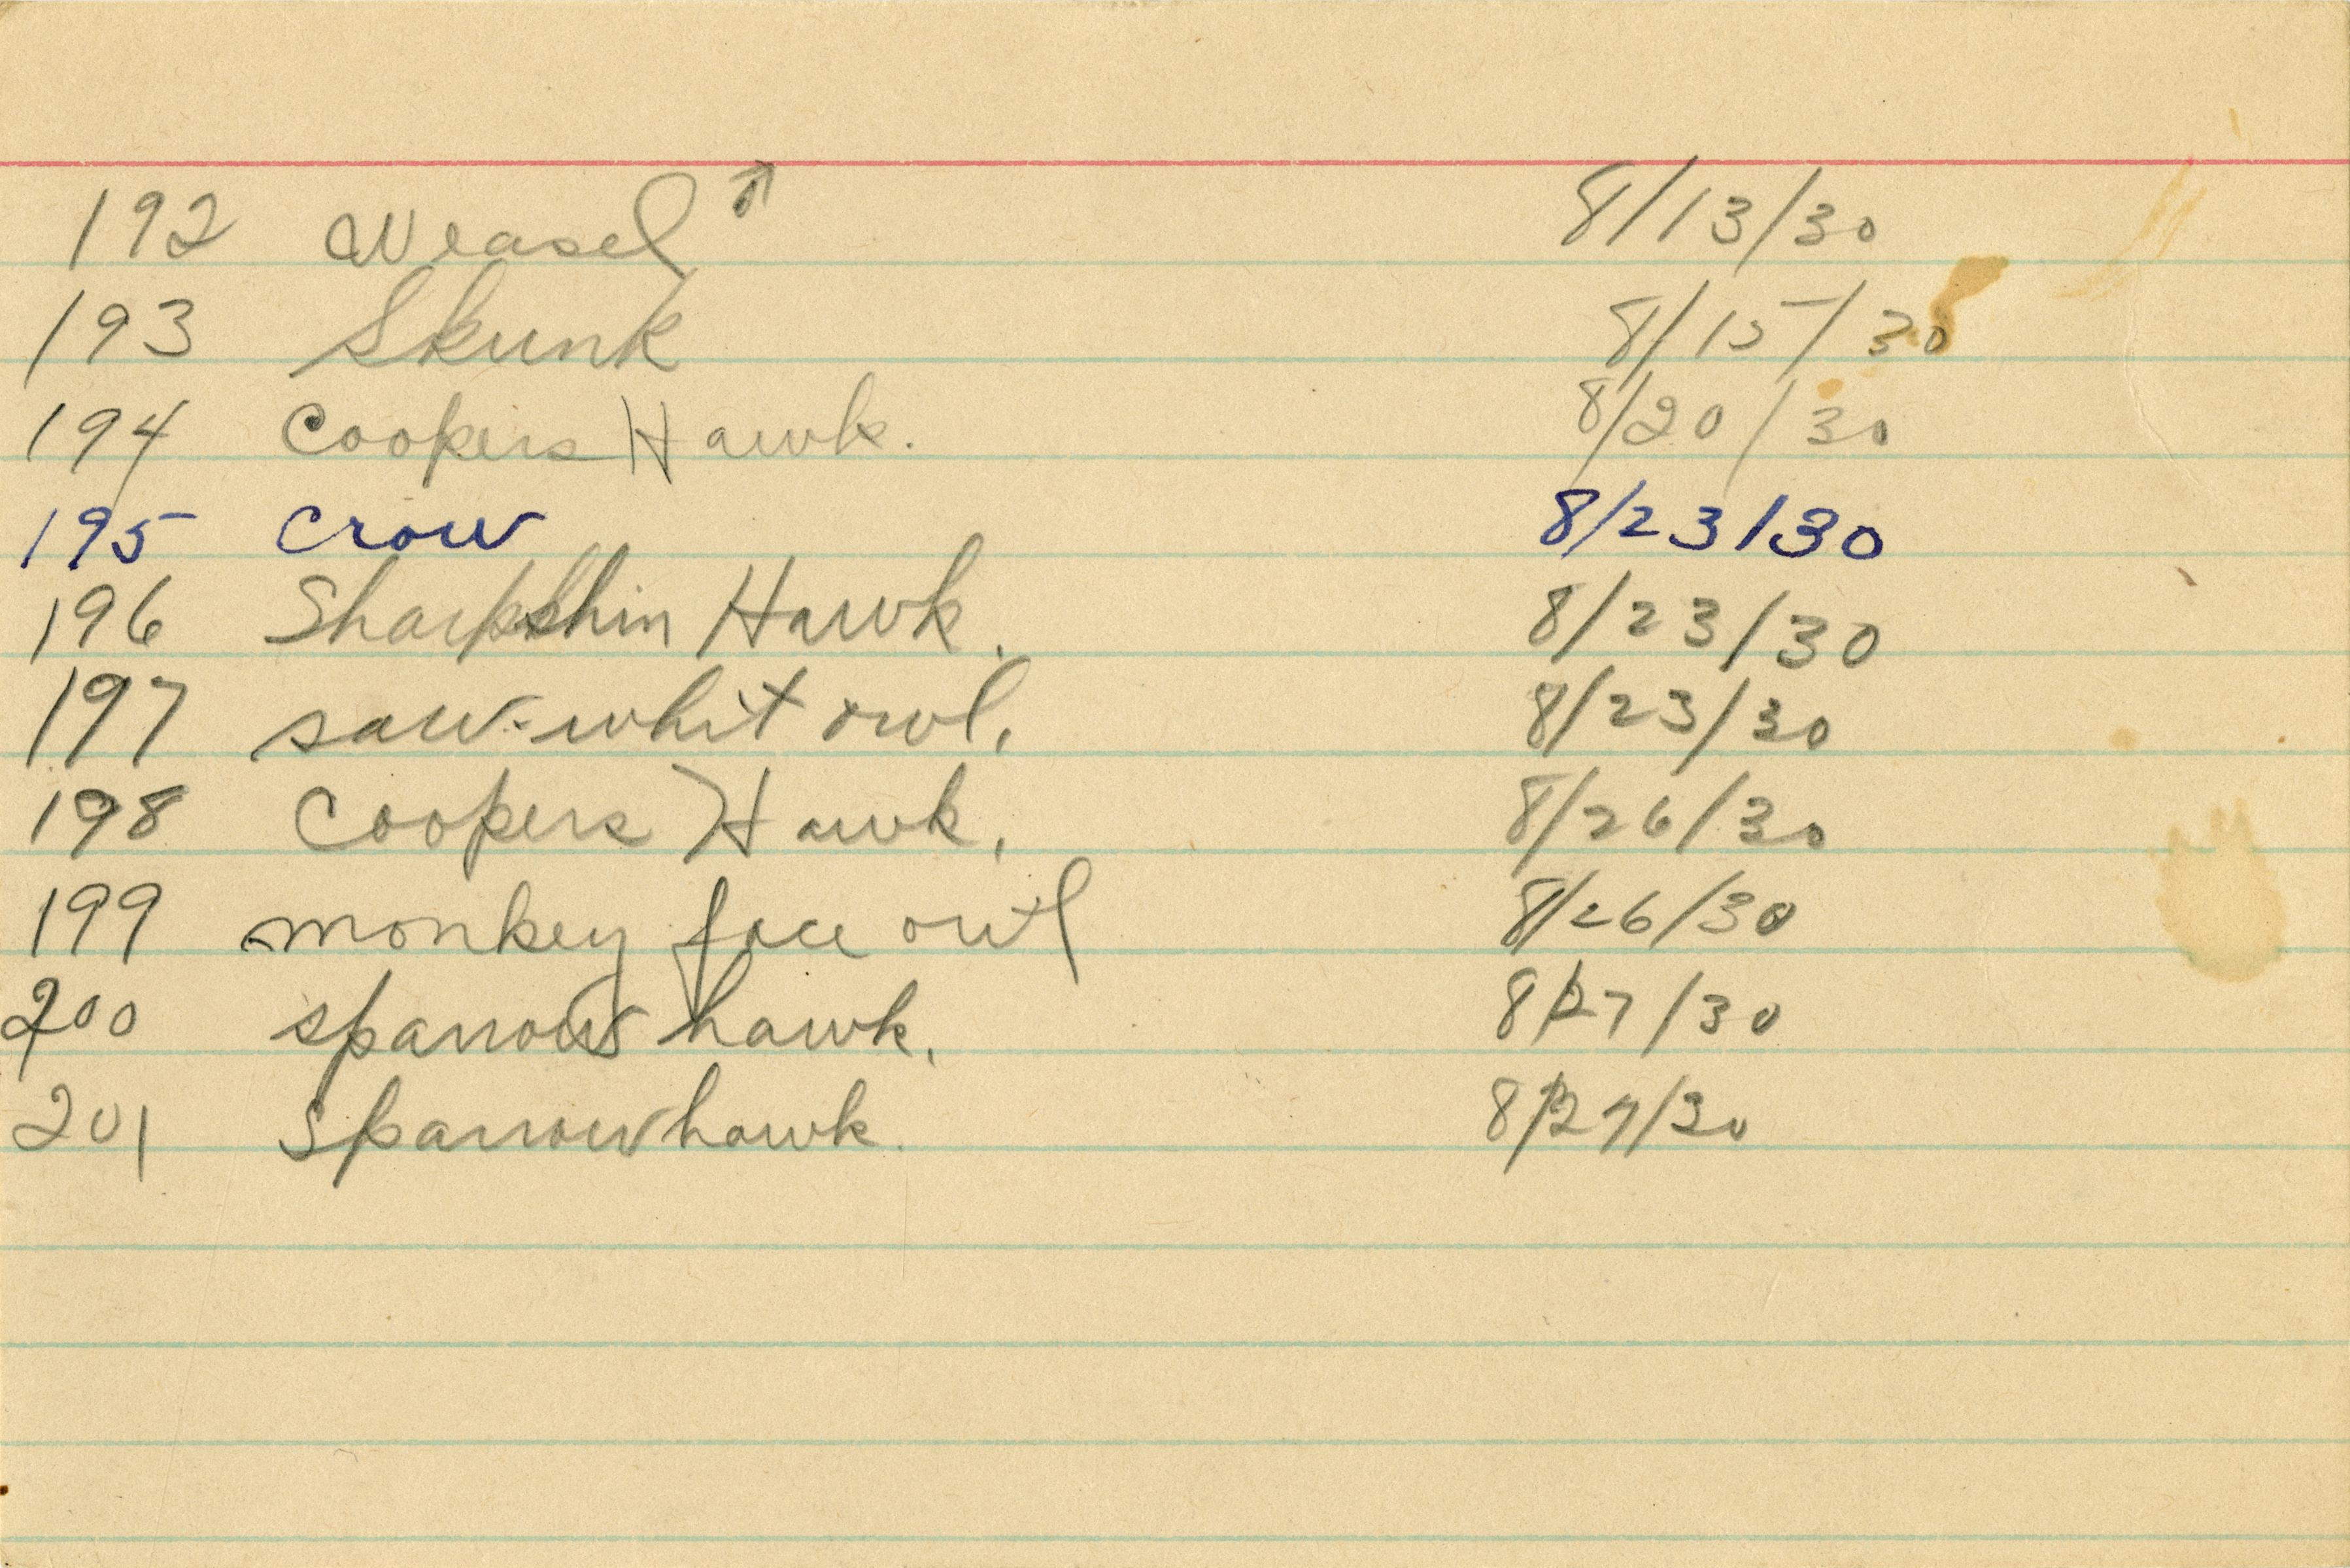 192 Weasel ♂ 8/13/30
193 Skunk 8/15/30
194 Coopers Hawk. 8/20/30
195 Crow 8/23/30
196 Sharpshin Hawk. 8/23/30
197 saw-whit owl. 8/23/30
198 Coopers Hawk. 8/26/30
199 monkey face owl 8/26/30
200 sparrow hawk. 8/27/30
201 sparrow hawk. 8/27/30